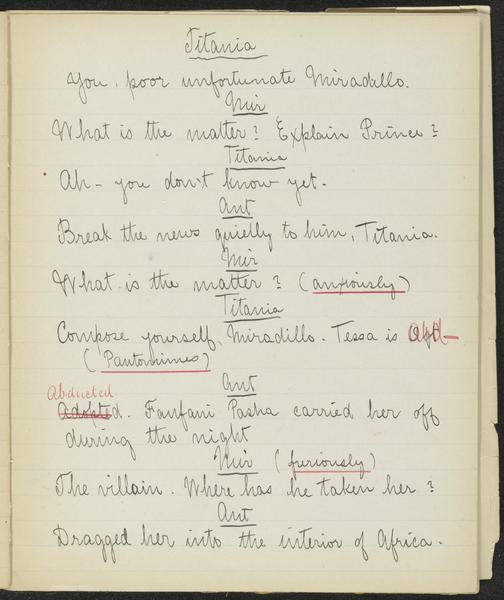 Titania
You, poor unfortunate Miradillo.
Mir
What is the matter? Explain Prince?
Titania
Ah - you don't know yet.
Ant
Break the news quietly to him, Titania.
Mir
What is the matter? (anxiously)
Titania
Compose yourself, Miradillo. Tessa is
(Pantomimes)
Ant
Abducted
Adopted. Fanfani Pasha carried her off
during the night
Mir (furiously)
The villain. Where has he taken her?
Ant
Dragged her into the interior of Africa.